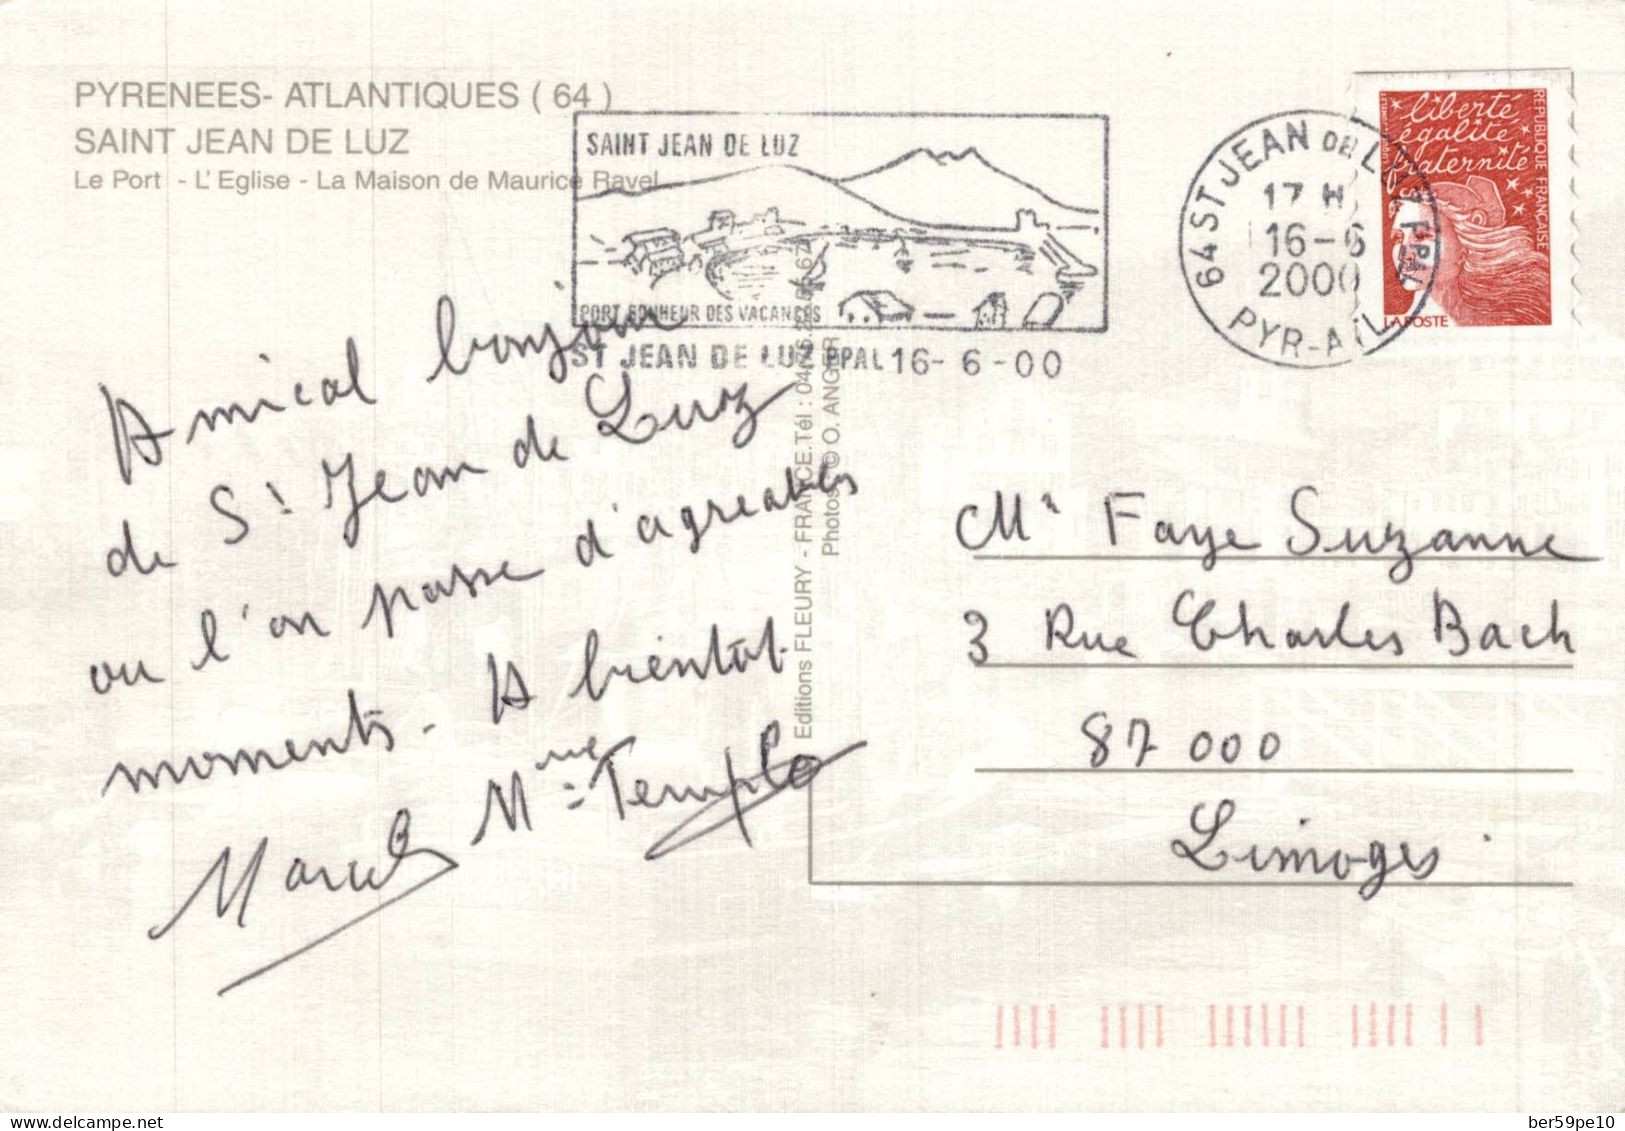 PYRENEES- ATLANTIQUES ( 64 )
SAINT JEAN DE LUZ
Le Port - L'Eglise - La Maison de Maurice Ravel
SAINT JEAN DE LUZ
PORT BONHEUR DES VACANCES
ST JEAN DE LUZ PPAL 16- 6 -00
64 ST JEAN DE LUZ PPAL
17 H
16-6
2000
PYR-ATL
liberté
égalité
fraternité
REPUBLIQUE FRANÇAISE
LA POSTE
Amical bonjour
de St Jean de Luz
ou l'on passe d'agreables
moments - A bientôt
Marcel Mme Templo
Editions FLEURY - FRANCE.Tél :
Photos © O. ANGER
Me Faye Suzanne
3 Rue Charles Bach
87 000
Limoges
delcampe.net
ber59pe10